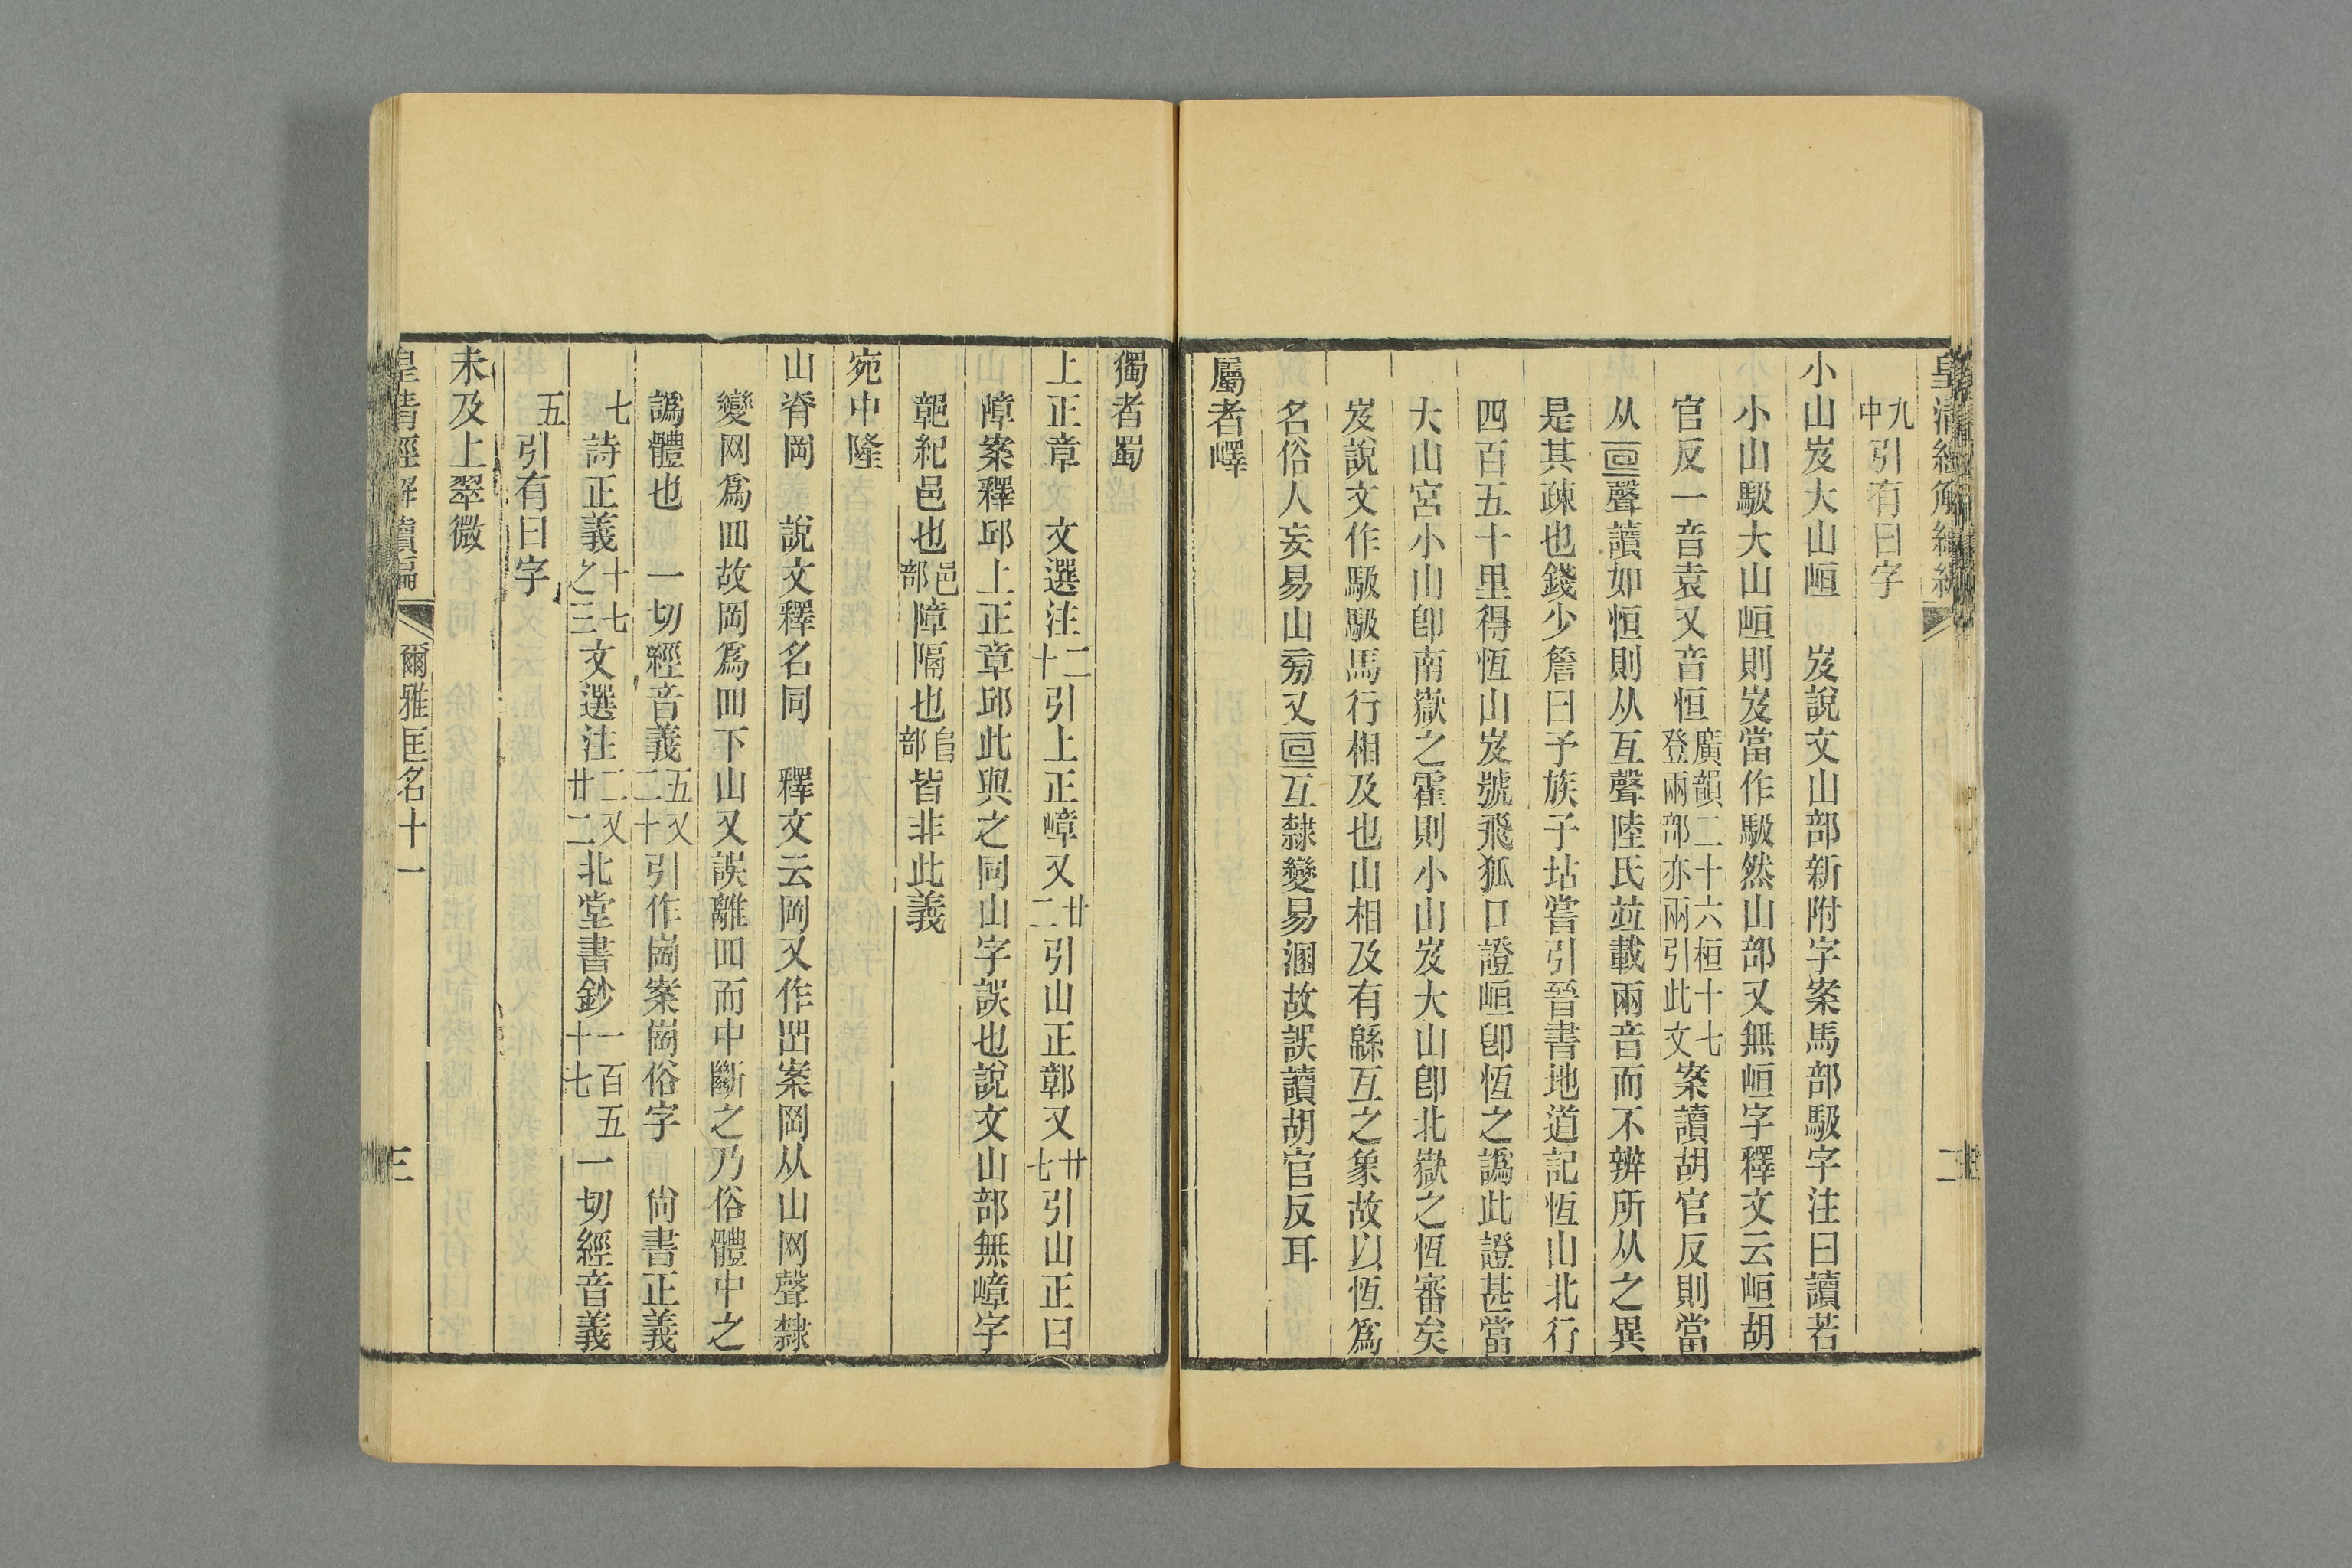 皇清經解續編　二
九中引有曰字
小山岌大山峘　岌說文山部新附字案馬部馺字注曰讀若
小山馺大山峘則岌當作馺然山部又無峘字釋文云峘胡
官反一音袁又音恒廣韻二十六桓十七登兩部亦兩引此文案讀胡官反則當
从𠄢聲讀如恒則从互聲陸氏竝載兩音而不辨所从之異
是其疎也錢少詹曰予族子坫嘗引晉書地道記恆山北行
四百五十里得恆山岌號飛狐口證峘卽恆之譌此證甚當
大山宮小山卽南嶽之霍則小山岌大山卽北嶽之恆審矣
岌說文作馺馺馬行相及也山相及有緜互之象故以恆爲
名俗人妄易山㫄又𠄢互隸變易溷故誤讀胡官反耳
屬者嶧
獨者蜀
上正章　文選注二十引上正嶂又廿二引山正鄣又廿七引山正曰
障案釋邱上正章邱此與之同山字誤也說文山部無嶂字
鄣紀邑也邑部障隔也𨸏部皆非此義
宛中隆
山脊岡　說文釋名同　釋文云岡又作𡶩案岡从山网聲隸
變网爲𦉰故岡爲𦉰下山又誤離𦉰而中斷之乃俗體中之
譌體也　一切經音義五又二十引作崗案崗俗字　尙書正義
七詩正義十七之三文選注二又廿二北堂書鈔一百五十七一切經音義
五引有曰字
未及上翠微
皇清經解續編　爾雅匡名十一　三